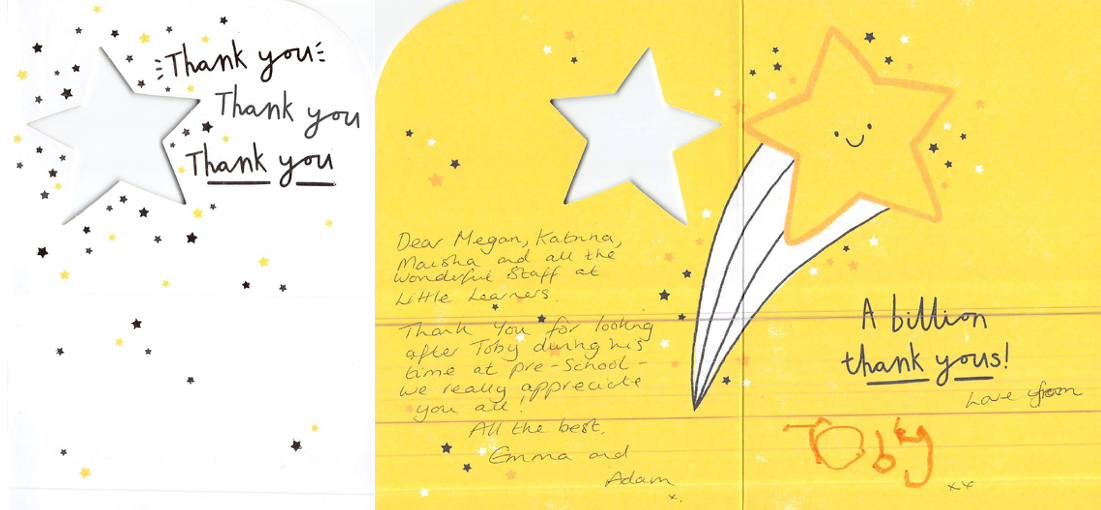 Thank you
Thank you
Thank you
Dear Megan, Katrina,
Maisha and all the
wonderful Staff at
Little Learners.
Thank You for looking
after Toby during his
time at pre-School -
we really appreciate
you all!
All the best,
Emma and
Adam
x.
A billion
thank yous!
Love from
Toby
xx